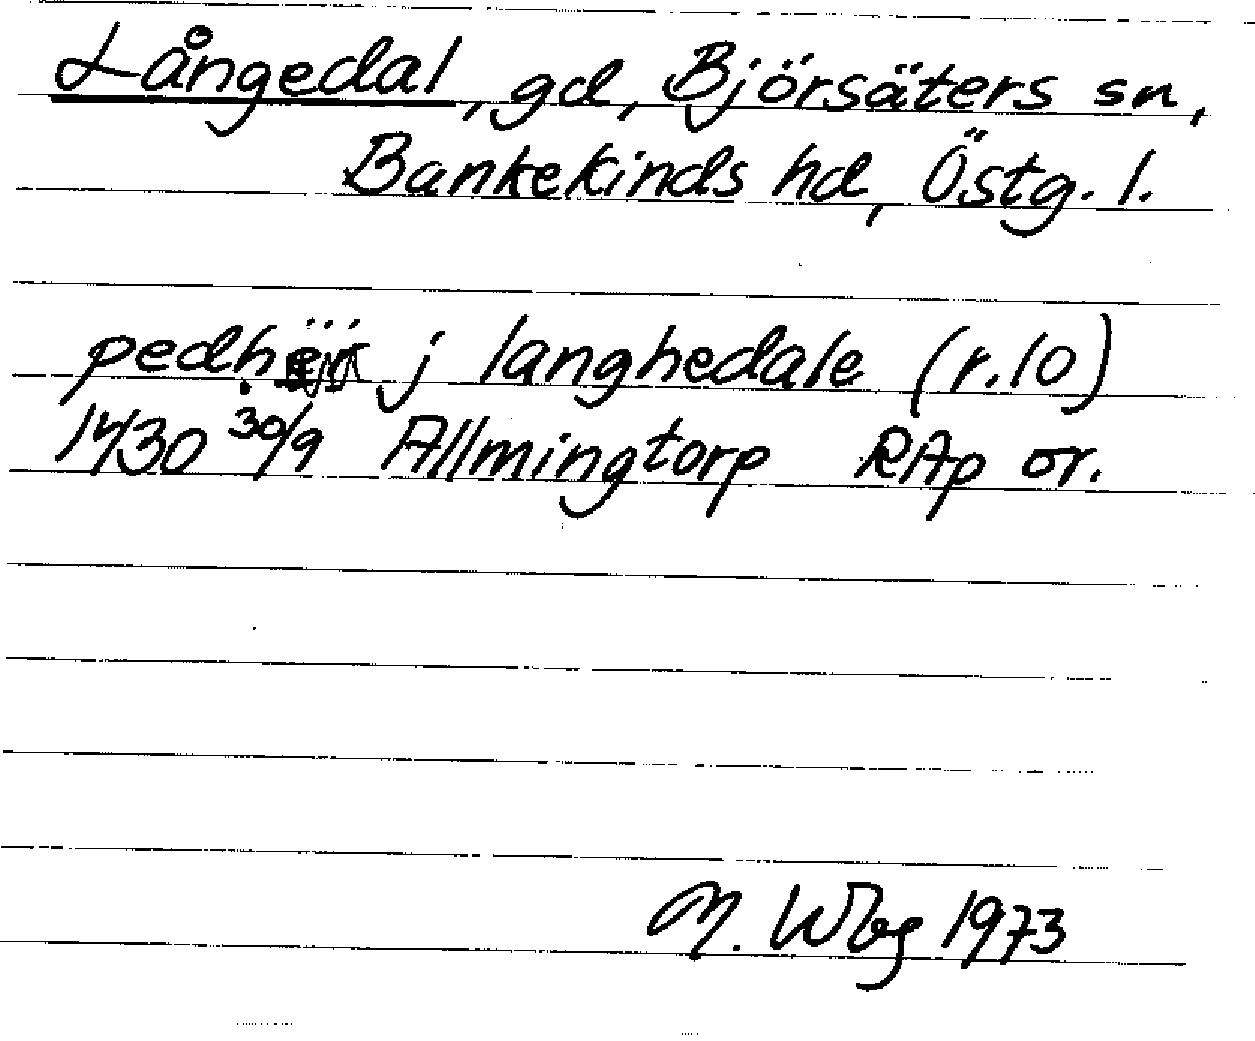 Långedal, gd, Björsäters sn,
Bankekinds hd, Östg. l.
j langhedale (r.10)
1430 30/9 Allmingtorp RAp or.
M. Wbg 1973